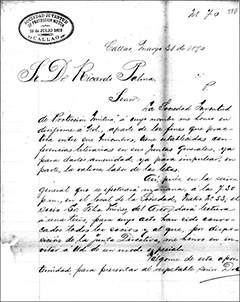 SOCIEDAD JUVENTUD
DE PROTECCION MUTUA
CALLAO
Callao, Marzo 31 de 1890
Sr. Dr. Ricardo Palma.
P
Señor:
La Sociedad Juventud
de Protección Mutua, á cuyo nombre me honro en
dirijirme á Ud., aparte de los fines que prac-
tica entre sus miembros, tiene establecidas con-
ferencias literarias en sus Juntas Generales, ya
para darles amenidad, ya para impulsar, en
parte, la valiosa labor de las letras.
en la sesión
general que se efectuará mañana, á las 7.30
p.m., en el local de la Sociedad,
el
Socio Sr. Félix
para cuyo acto han sido convo-
cados todos los socios y al que, por dispo-
sición de la Junta Directiva, me honro en in-
vitar á Ud. de un modo especial.
Válgome de esta opor-
tunidad para presentar al respetable Señor